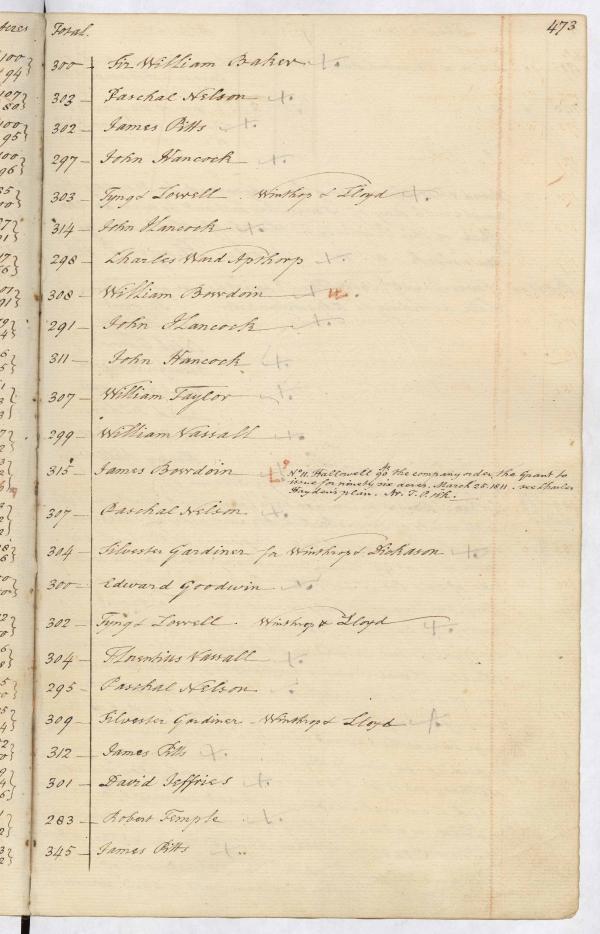 473
Acres Total.
100
94}
300 — Sir William Baker
107
80}
303 — Paschal Nelson
100
95}
302 — James Pitts
100
96}
297 — John Hancock
303 — Tyng & Lowell . Winthrop & Lloyd
314 — John Hancock
298 — Charles Ward Apthorp
308 — William Bowdoin
291 — John Hancock
311 — John Hancock
307 — William Taylor
299 — William Vassall
315 — James Bowdoin
No. 11. Hallowell. the company order, the Grant to
issue for ninety six acres. March 25. 1811. see Charles
Hayden's plan.
307 — Paschal Nelson
304 — Silvester Gardiner for Winthrop & Dickason
300 — Edward Goodwin
302 — Tyng & Lowell . Winthrop & Lloyd
304 — Florentius Vassall
295 — Paschal Nelson
309 — Silvester Gardiner - Winthrop & Lloyd
312 — James Pitts
301 — David Jeffries
283 — Robert Temple
345 — James Pitts